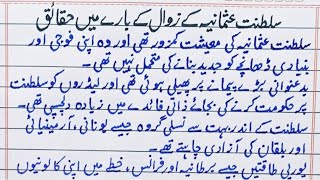 سلطنت عثمانیہ کے زوال کے بارے میں حقائق
سلطنت عثمانیہ کی معیشت کمزور تھی اور وہ اپنی فوجی اور
بنیادی ڈھانچے کو جدید بنانے کی متحمل نہیں تھی۔
بدعنوانی بڑے پیمانے پر پھیلی ہوئی تھی اور لیڈروں کو سلطنت
پر حکومت کرنے کی بجائے ذاتی فائدے میں زیادہ دلچسپی تھی۔
سلطنت کے اندر بہت سے نسلی گروہ جیسے یونانی، آرمینیائی
اور بلقان کی آزادی چاہتے تھے۔
یورپی طاقتیں جیسے برطانیہ اور فرانس، خطے میں اپنی کالونیوں